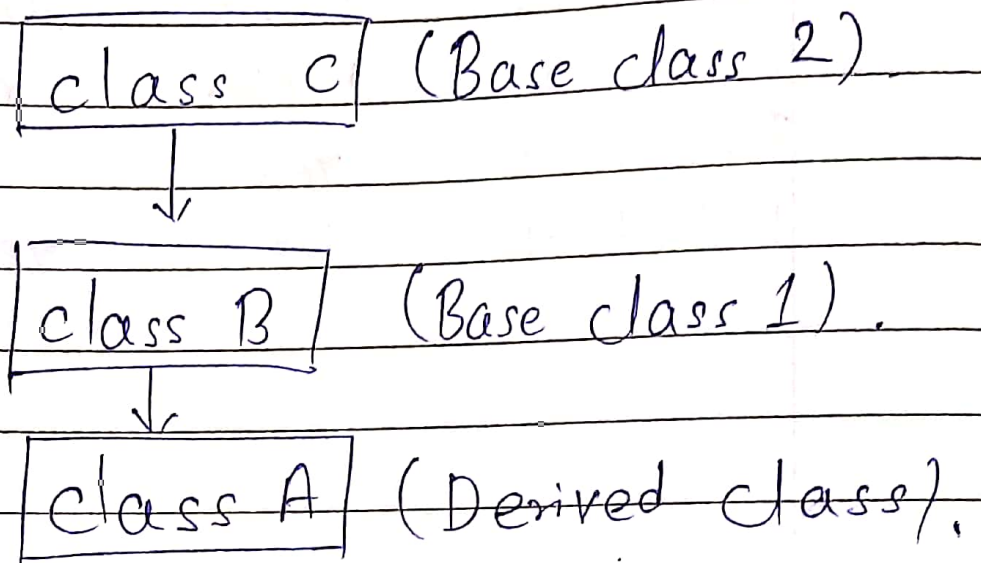 class C (Base class 2)
class B (Base class 1).
class A (Derived class).